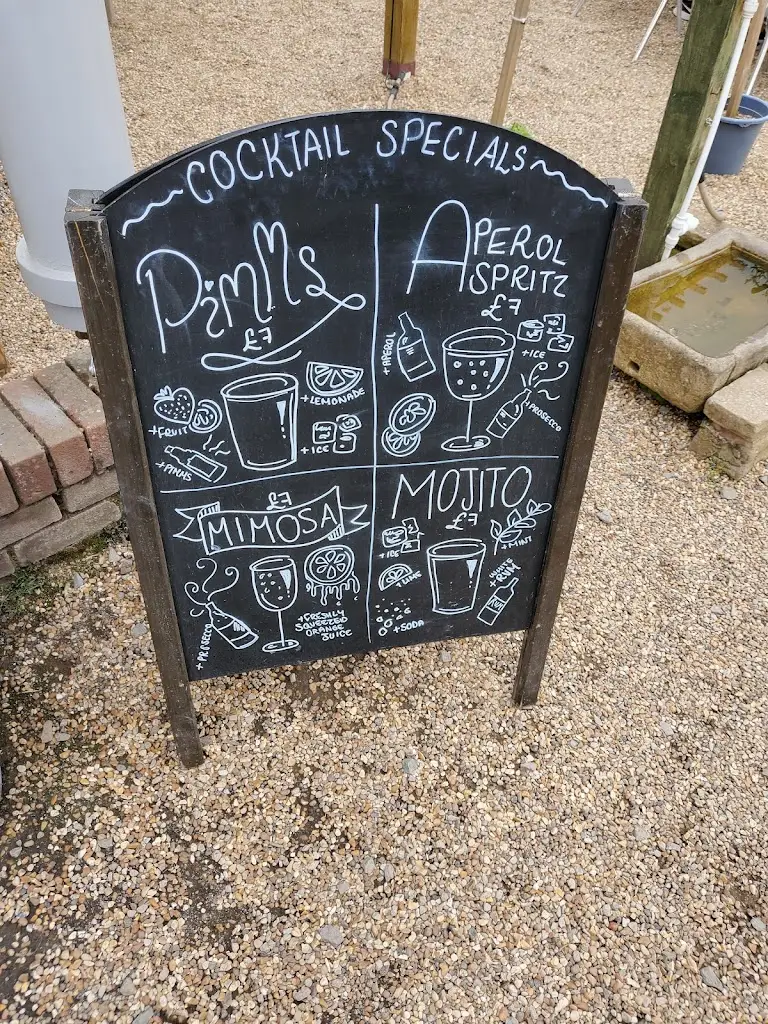 COCKTAIL SPECIALS
Pimms
£7
+FRUIT
+LEMONADE
+ICE
+PIMMS
APEROL
SPRITZ
£7
+APEROL
+ICE
+PROSECCO
£7
MIMOSA
+PROSECCO
+FRESHLY
SQUEEZED
ORANGE
JUICE
MOJITO
£7
+ICE
+MINT
+LIME
+WHITE
RUM
RUM
+SODA